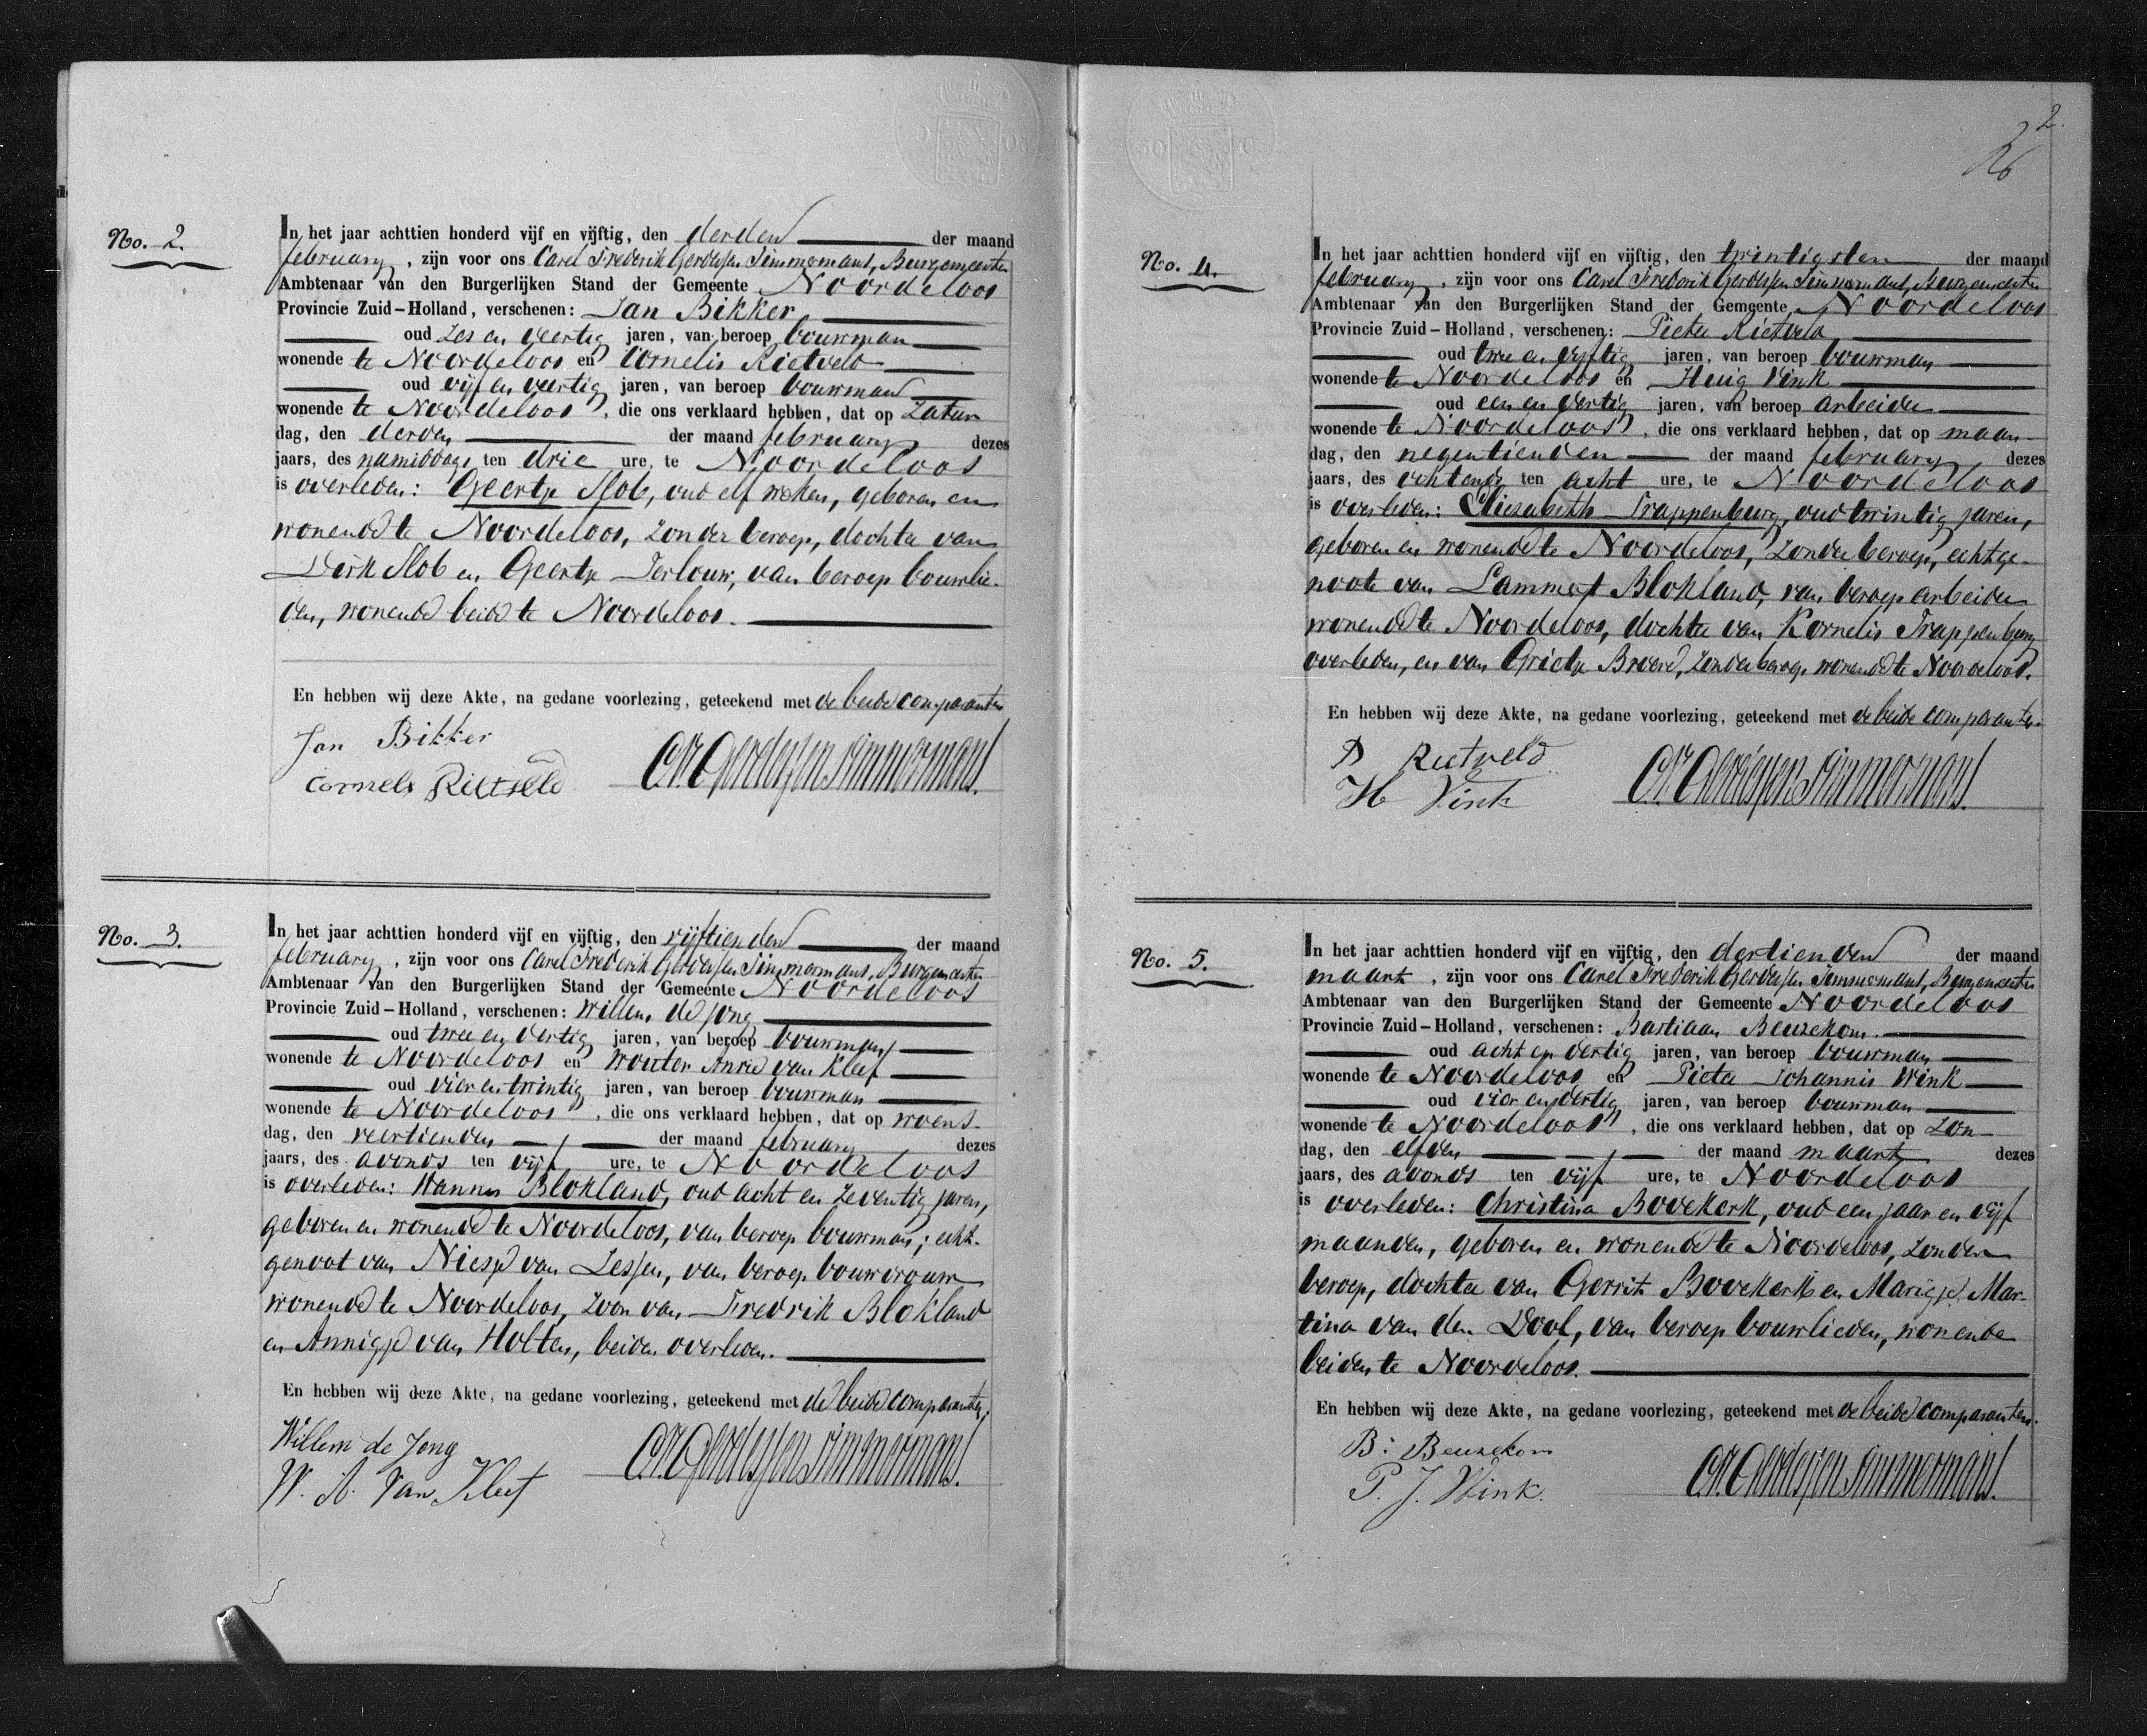 No. 2.
In het jaar achttien honderd vijf en vijftig, den derden der maand
february, zijn voor ons Carel Frederik Gerdessen Timmermans, Burgemeester
Ambtenaar van den Burgerlijken Stand der Gemeente Noordeloos
Provincie Zuid-Holland, verschenen: Jan Bikker
oud zes en veertig jaren, van beroep bouwman
wonende te Noordeloos en Cornelis Rietveld
oud vijf en veertig jaren, van beroep bouwman
wonende te Noordeloos, die ons verklaard hebben, dat op Zatur
dag, den derden der maand february dezes
jaars, des namiddags ten drie ure, te Noordeloos
is overleden: Geertje Slob, oud elf weken, geboren en
wonende te Noordeloos, zonder beroep, dochter van
Dirk Slob en Geertje Terlouw, van beroep bouwlie-
den, wonende beide te Noordeloos.
En hebben wij deze Akte, na gedane voorlezing, geteekend met de beide comparanten
Jan Bikker
Cornelis Rietveld
No. 3.
In het jaar achttien honderd vijf en vijftig, den vijftienden der maand
february, zijn voor ons Carel Frederik Gerdessen Timmermans, Burgemeester
Ambtenaar van den Burgerlijken Stand der Gemeente Noordeloos
Provincie Zuid-Holland, verschenen: Willem de Jong
oud twee en dertig jaren, van beroep bouwman
wonende te Noordeloos en Wouter Anrie van Kleef
oud vier en twintig jaren, van beroep bouwman
wonende te Noordeloos, die ons verklaard hebben, dat op woens-
dag, den veertienden der maand february dezes
jaars, des avonds ten vijf ure, te Noordeloos
is overleden: Hannes Blokland, oud acht en zeventig jaren,
geboren en wonende te Noordeloos, van beroep bouwman; echt-
genoot van Niesje van Lessen, van beroep bouwvrouw
wonende te Noordeloos, zoon van Fredrik Blokland
en Annigje van Holten, beiden overleden.
En hebben wij deze Akte, na gedane voorlezing, geteekend met de beide comparanten.
Willem de Jong
W. A. Van Kleef
2.
No. 4.
In het jaar achttien honderd vijf en vijftig, den twintigsten der maand
february, zijn voor ons Carel Frederik Gerdessen Timmermans, Burgemeester
Ambtenaar van den Burgerlijken Stand der Gemeente Noordeloos
Provincie Zuid-Holland, verschenen: Pieter Rietveld
oud twee en vijftig jaren, van beroep bouwman
wonende te Noordeloos en Huig Vink
oud een en dertig jaren, van beroep arbeider
wonende te Noordeloos, die ons verklaard hebben, dat op maan-
dag, den negentienden der maand february dezes
jaars, des ochtends ten acht ure, te Noordeloos
is overleden: Eliezabeth Trappenburg, oud twintig jaren,
geboren en wonende te Noordeloos, zonder beroep, echtge-
noote van Lammert Blokland, van beroep arbeider
wonende te Noordeloos, dochter van Kornelis Trappenburg
overleden, en van Grietje Broere, zonder beroep wonende te Noordeloos.
En hebben wij deze Akte, na gedane voorlezing, geteekend met de beide comparanten.
P Rietveld
H Vink
No. 5.
In het jaar achttien honderd vijf en vijftig, den dertienden der maand
maart, zijn voor ons Carel Frederik Gerdessen Timmermans, Burgemeester
Ambtenaar van den Burgerlijken Stand der Gemeente Noordeloos
Provincie Zuid-Holland, verschenen: Bastiaan Beuzekom.
oud acht en dertig jaren, van beroep bouwman
wonende te Noordeloos en Pieter Johannis Wink
oud vier en dertig jaren, van beroep bouwman
wonende te Noordeloos, die ons verklaard hebben, dat op Zon-
dag, den elfden der maand maart dezes
jaars, des avonds ten vijf ure, te Noordeloos
is overleden: Christina Bovekerk, oud een jaar en vijf
maanden, geboren en wonende te Noordeloos, zonder
beroep, dochter van Gerrit Bovekerk en Marigje Mar-
tina van den Dool, van beroep bouwlieden, wonende
beiden te Noordeloos.
En hebben wij deze Akte, na gedane voorlezing, geteekend met de beide comparanten.
B: Beuzekom
P. J. Wink.